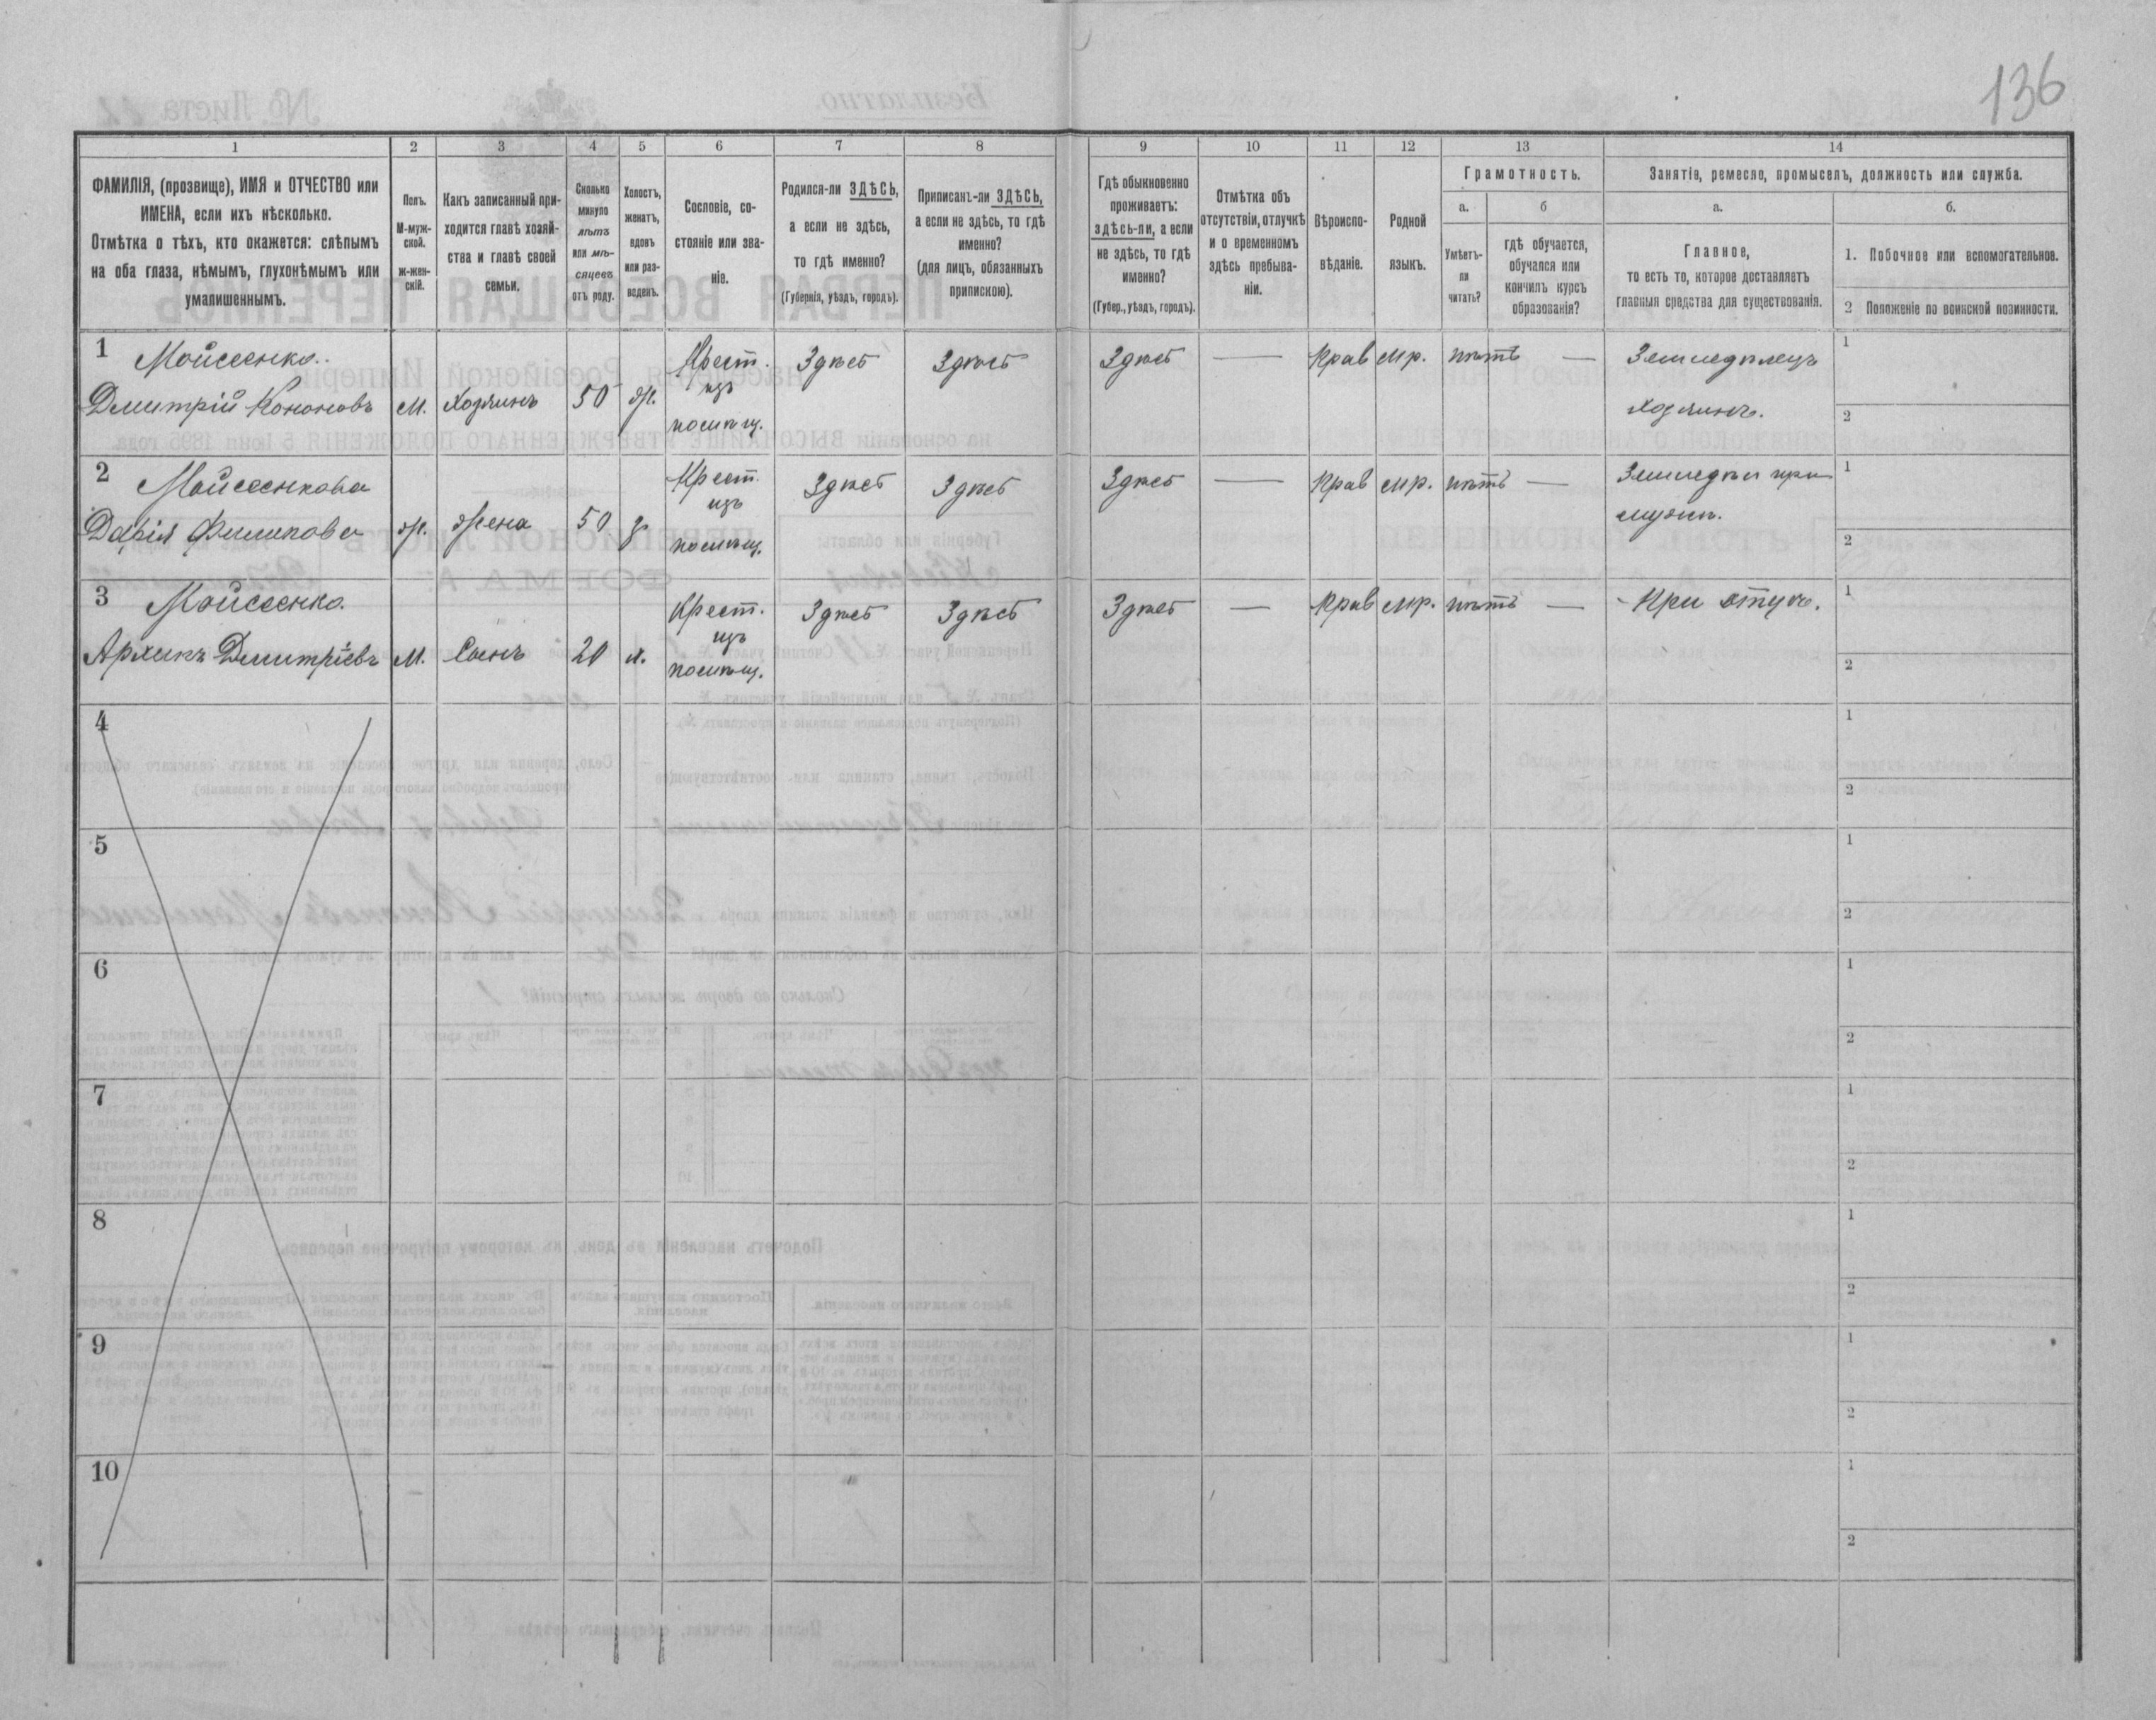 136
1 2 3 4 5 6 7 8 9 10 11 12 13 14
ФАМИЛІЯ, (прозвище), ИМЯ и ОТЧЕСТВО или
ИМЕНА, если ихъ нѣсколько.
Отмѣтка о тѣхъ, кто окажется: слѣпымъ
на оба глаза, нѣмымъ, глухонѣмымъ или
умалишеннымъ.
Полъ.
М-муж-
ской.
Ж-жен-
скій.
Какъ записанный при-
ходится главѣ хозяй-
ства и главѣ своей
семьи.
Сколько
минуло
лѣтъ
или мѣ-
сяцевъ
отъ роду.
Холостъ,
женатъ,
вдовъ
или раз-
веденъ.
Сословіе, со-
стояніе или зва-
ніе.
Родился-ли ЗДѢСЬ,
а если не здѣсь,
то гдѣ именно?
(Губернія, уѣздъ, городъ).
Приписанъ-ли ЗДѢСЬ,
а если не здѣсь, то гдѣ
именно?
(для лицъ, обязанныхъ
припискою).
Гдѣ обыкновенно
проживаетъ:
здѣсь-ли, а если
не здѣсь, то гдѣ
именно?
(Губер., уѣздъ, городъ).
Отмѣтка объ
отсутствіи, отлучкѣ
и о временномъ
здѣсь пребыва-
ніи.
Вѣроиспо-
вѣданіе.
Родной
языкъ.
Грамотность.
а.
Умѣетъ-
ли
читать?
б
гдѣ обучается,
обучался или
кончилъ курсъ
образованія?
Занятіе, ремесло, промыселъ, должность или служба.
а.
Главное,
то есть то, которое доставляетъ
главныя средства для существованія.
б.
1. Побочное или вспомогательное.
2 Положеніе по воинской повинности.
1 Мойсеенко
Дмитрій Кононовъ
М.
Хозяинъ
50
ж.
Крест.
изъ
посыпщ.
Здѣсь
Здѣсь
Здѣсь
—
Прав
мр.
нѣтъ
—
Земледѣлецъ
хозяинъ.
1
2
2 Мойсеенкова
Дарія Филипова
ж.
Жена
50
з
Крест.
изъ
Здѣсь
Здѣсь
Здѣсь
—
Прав
мр.
нѣтъ
—
Земледѣл при
мужѣ.
1
2
3 Мойсеенко
Архипъ Дмитріевъ
М.
Сынъ
20
х.
Крест.
изъ
Здѣсь
Здѣсь
Здѣсь
—
Прав
мр.
нѣтъ
—
При отцѣ.
1
2
4
1
2
5
1
2
6
1
2
7
1
2
8
1
2
9
1
2
10
1
2